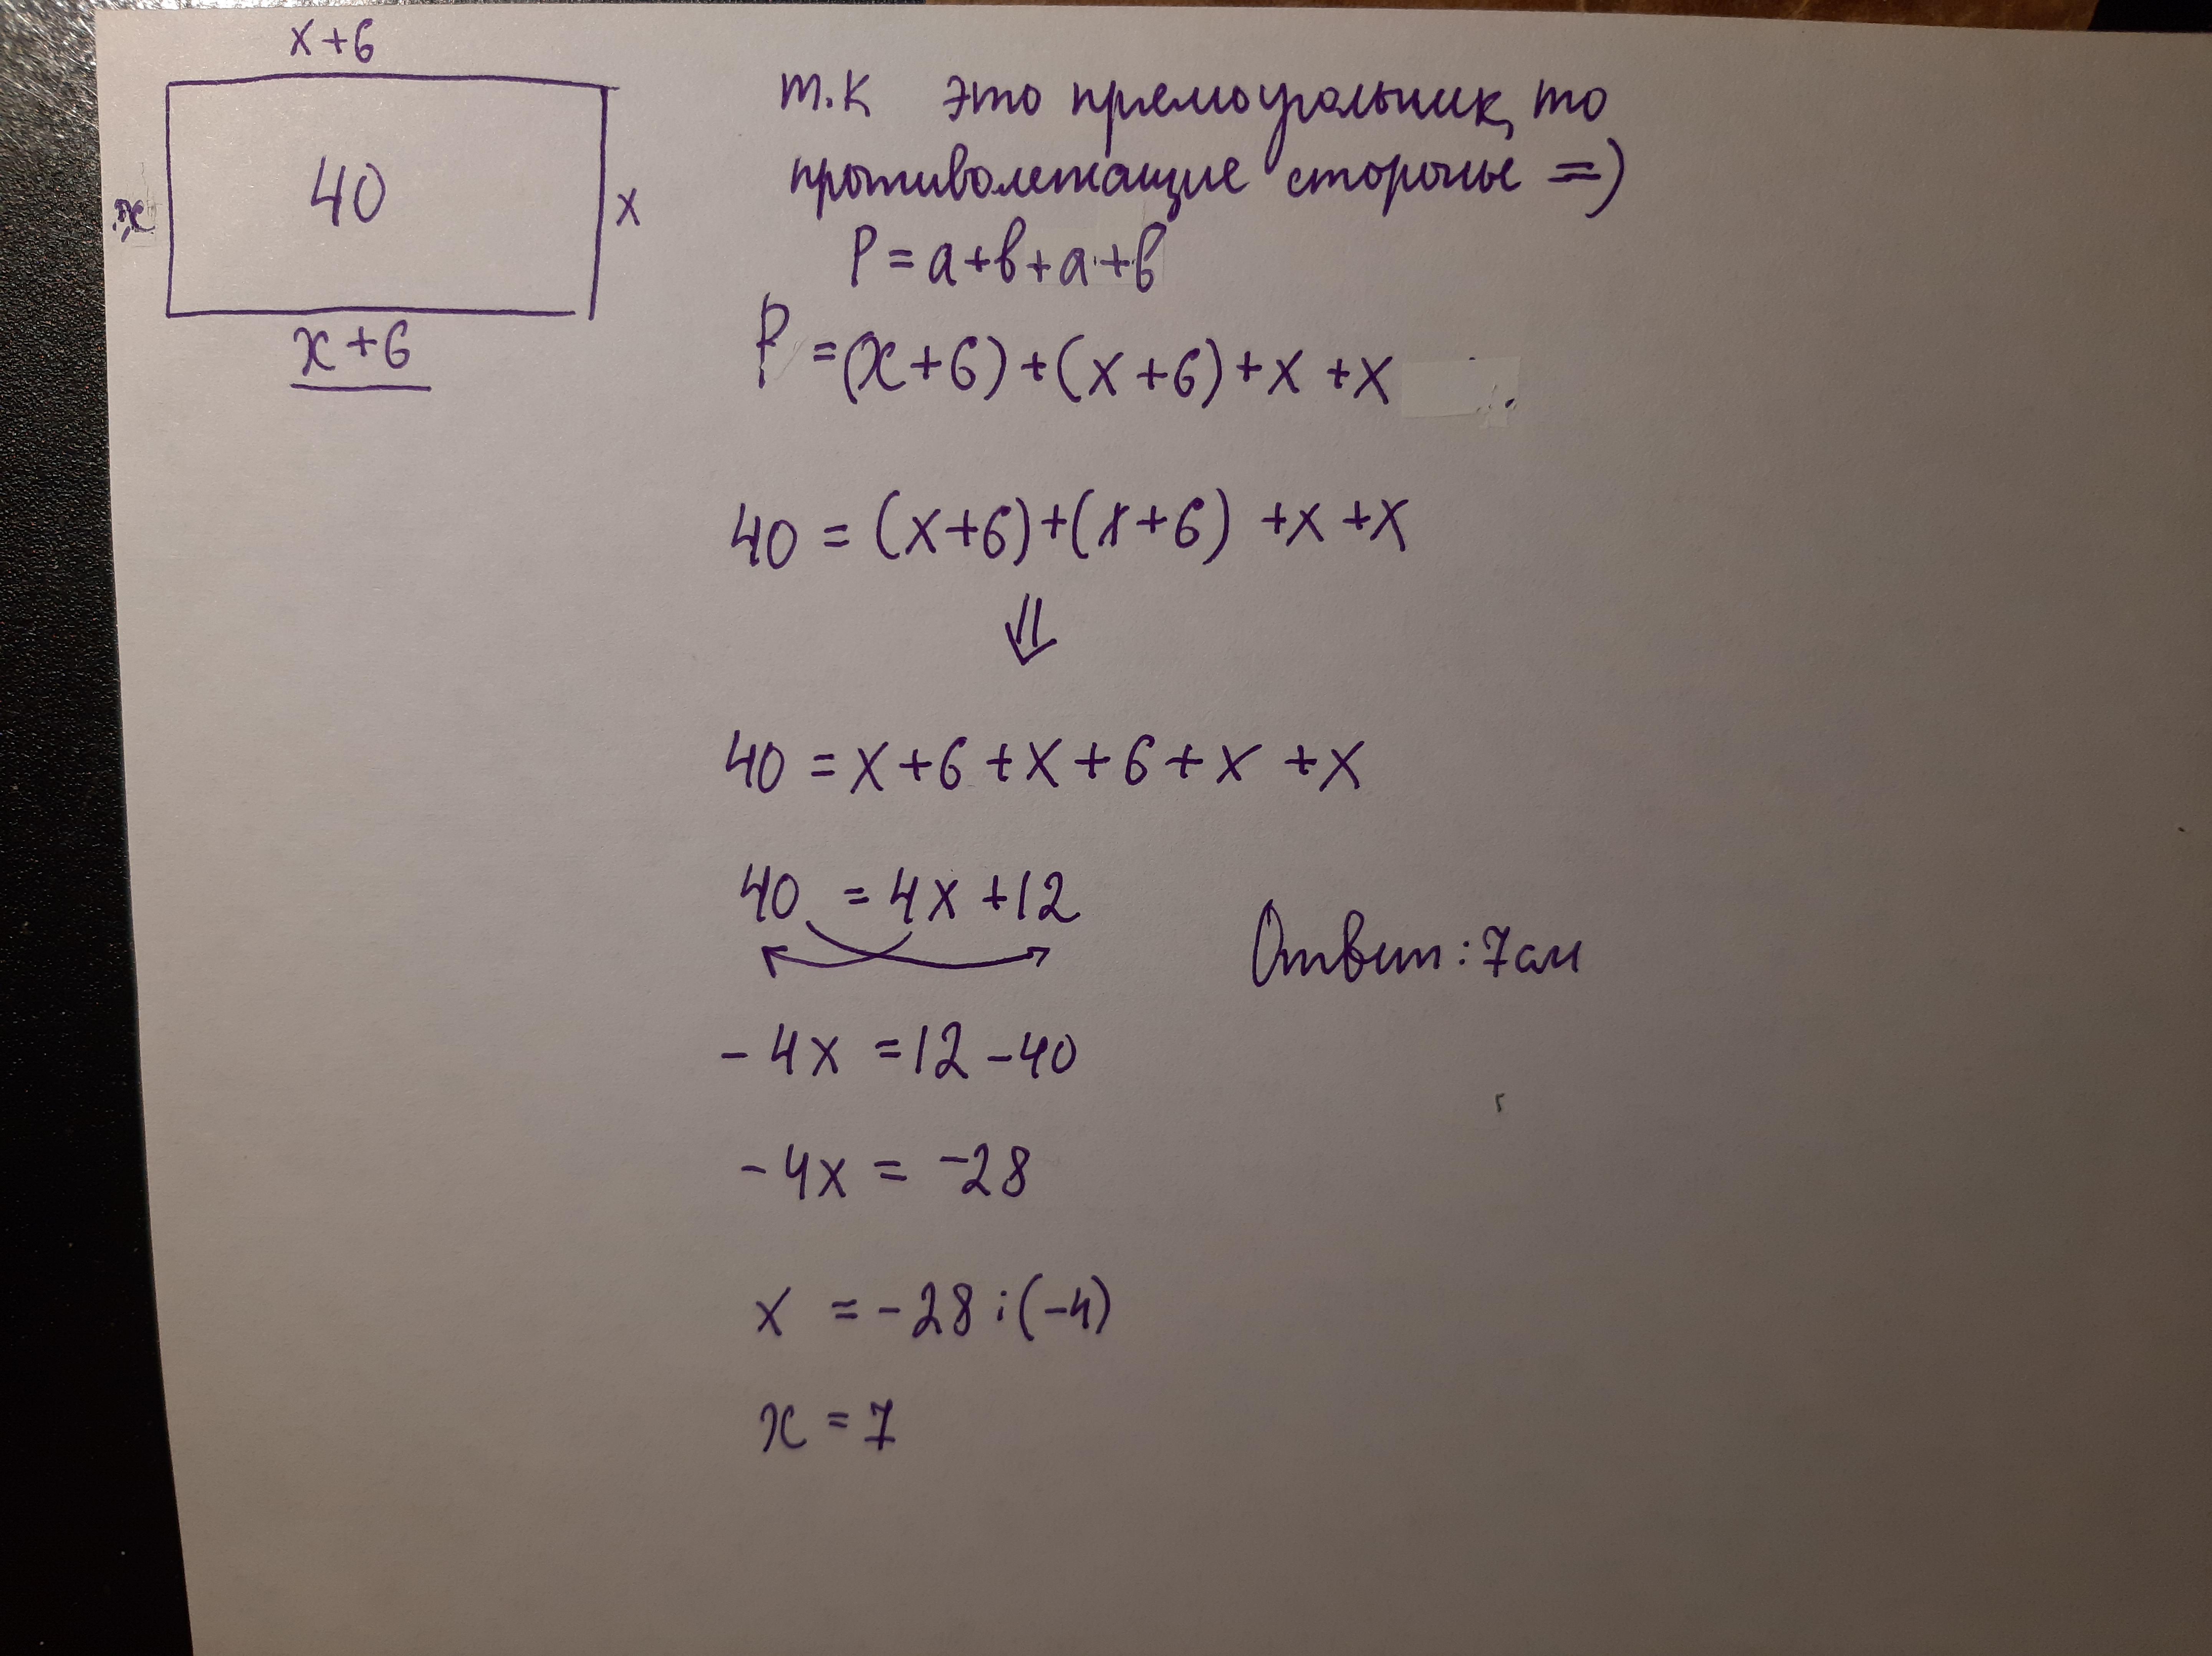 x+6
40
x
x
x+6
т.к это прямоугольник, то
противолежащие стороны =)
P = a+b+a+b
P = (x+6)+(x+6)+x+x
40 = (x+6)+(x+6)+x+x
⇓
40 = x+6+x+6+x+x
40 = 4x+12
Ответ: 7см
-4x = 12-40
-4x = -28
x = -28:(-4)
x = 7